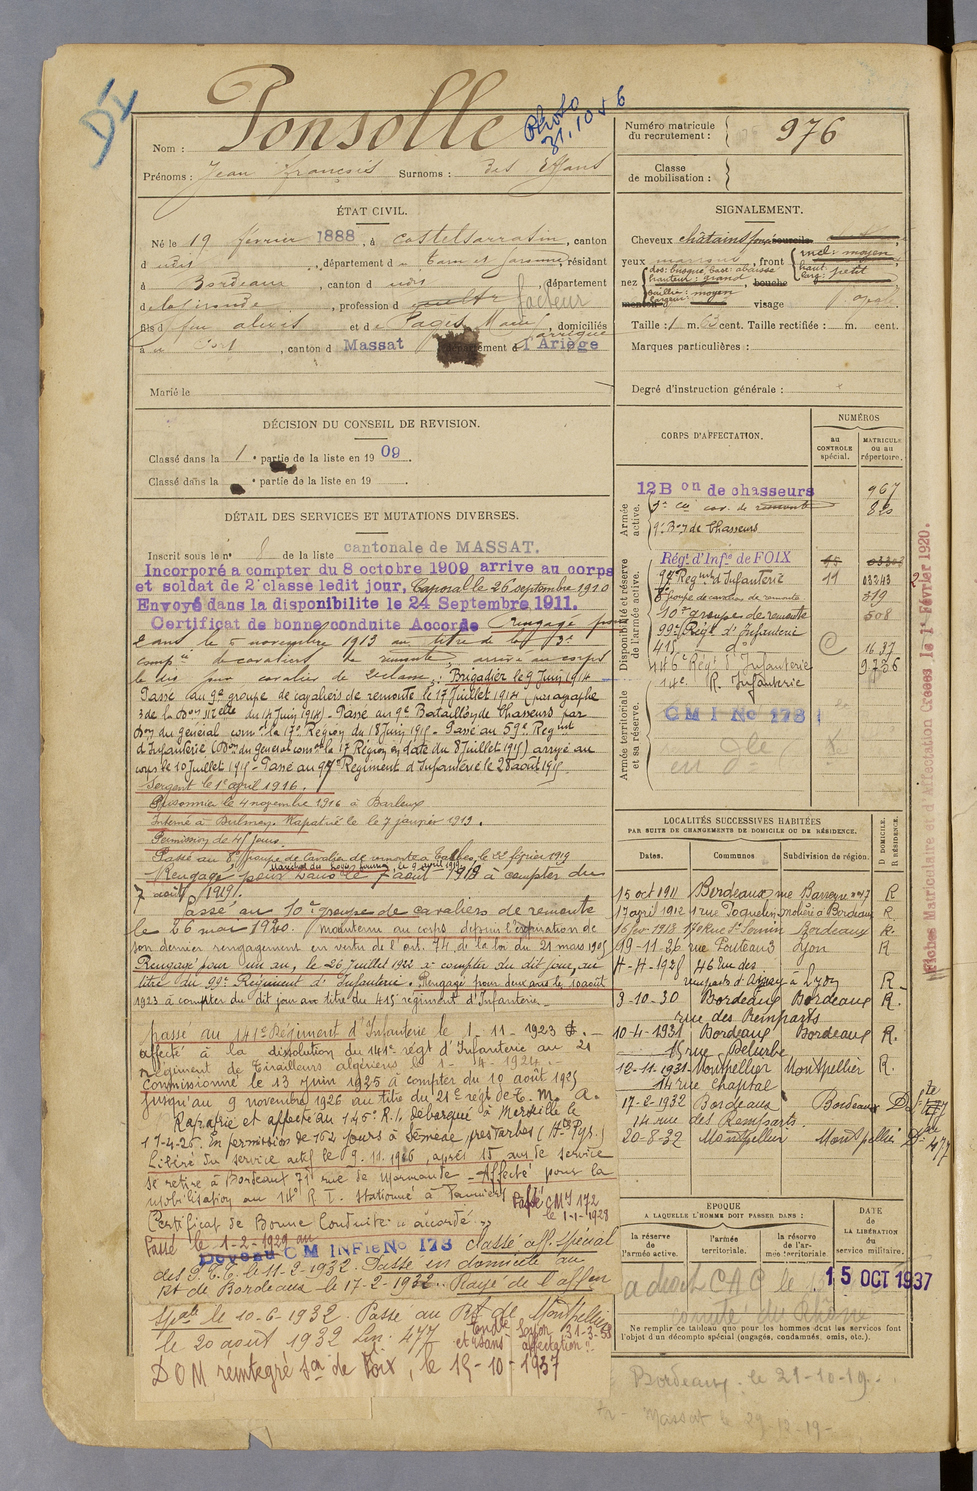 DI
Photo
31.10.56
Nom : Ponsolle
Prénoms : Jean François Surnoms : des Effans
Numéro matricule
du recrutement : 976
Classe
de mobilisation :
ÉTAT CIVIL.
Né le 19 février 1888, à Castelsarrasin, canton
d udit, département d u Tarn et Garonne, résidant
à Bordeaux, canton d udit, département
d e la Gironde, profession d facteur
fils d feu alexis et d e Pagès Marie, domiciliés
à, canton d Massat, département d l'Ariège
Marié le
SIGNALEMENT.
Cheveux châtains foncé sourcils
yeux marrons, front incl: moyen
haut
larg: petit
nez dos: busqué, base: abaissé
hauteur: grand
saillie: moyen
largeur: moyen
bouche
menton visage
Taille : 1 m. 63 cent. Taille rectifiée : m. cent.
Marques particulières :
Degré d'instruction générale :
DÉCISION DU CONSEIL DE REVISION.
Classé dans la 1e partie de la liste en 1909
Classé dans la e partie de la liste en 19
DÉTAIL DES SERVICES ET MUTATIONS DIVERSES.
Inscrit sous le n° 8 de la liste cantonale de MASSAT.
Incorporé a compter du 8 octobre 1909 arrive au corps
et soldat de 2e classe ledit jour, Caporal le 26 septembre 1910
Envoyé dans la disponibilite le 24 Septembre 1911.
Certificat de bonne conduite Accordé Rengagé pour
2 ans le 5 novembre 1913 au titre de la 3e
compie de cavaliers de remonte, arrivé au corps
le dis jour cavalier de 2e classe : Brigadier le 9 Juin 1914
Passé au 9e groupe de cavaliers de remonte le 17 Juillet 1914 (paragraphe
3 de la Don Mlelle du 14 Juin 1914) - Passé au 9e Bataillon de Chasseurs par
Don du général comt la 17e Région du 18 Juin 1915 - Passé au 59e Regint
d'Infanterie (Don du General comt la 17 Région en date du 8 Juillet 1915) arrivé au
corps le 10 Juillet 1915 - Passé au 97e Regiment d'Infanterie le 28 août 1915.
Sergent le 1er avril 1916.
Prisonnier le 4 novembre 1916 à Barleux
Interné à Dulmen. Rapatrié le le 7 janvier 1919.
Permission de 45 jours.
Passé au 8e groupe de Cavaliers de remonte à Tarbes, le 22 février 1919
Maréchal des Logis fourrier le 9 avril 1919
Rengagé pour 2 ans le 7 août 1919 à compter du
7 août 1919.
Passé au 10e groupe de cavaliers de remonte
le 26 mai 1920. Maintenu au corps depuis l'expiration de
son dernier rengagement en vertu de l'art. 74 de la loi du 21 mars 1905
Rengagé pour un an, le 26 Juillet 1922 à compter du dit jour, au
titre du 99e Régiment d'Infanterie. Rengagé pour deux ans le 10 août
1923 à compter du dit jour au titre du 415e régiment d'Infanterie.
passé au 141e Régiment d'Infanterie le 1-11-1923
affecté à la dissolution du 141e régt d'Infanterie au 21
régiment de Tirailleurs algériens le 1-4-1924
Commissionné le 13 Juin 1925 à compter du 10 août 1925
jusqu'au 9 novembre 1926 au titre du 21e régt de T. M. A.
Rapatrié et affecté au 146e R.I. débarqué à Marseille le
17-4-26. En permission de 162 jours à Séméac près Tarbes (Htes Pyr.)
Libéré du service actif le 9.11.1926, après 15 ans de service
se retire à Bordeaux 71 rue de Marmande - Affecté pour la
mobilisation au 14e R I. stationné à Pamiers
Passé CMI 172
le 1-1-1928
Certificat de Bonne Conduite : "accordé"
Passé le 1-2-1929 au
Devenu CM INFie No 173 classé aff. spécial
des P.T.T. le 11-2-1932. Passé en domicile au
Rt de Bordeaux le 17-2-1932. Rayé de l'affon
Spale le 10-6-1932. Passé au Rt de Montpellier
le 20 août 1932 Lin. 477
DOM réintégré Son de Foix, le 15-10-1937
CORPS D'AFFECTATION.
NUMÉROS
au
CONTROLE
spécial.
MATRICULE
ou au
répertoire.
Armée
active.
12 Bon de chasseurs 967
3e Cie cav. de remonte 820
9e Bon de Chasseurs
Disponibilité et réserve
de l'armée active.
Régt d'Infie de FOIX
97e Régiment d'Infanterie 11 03243
8e groupe de cavaliers de remonte 319
10e groupe de remonte 508
99e Régt d'Infanterie
415 d° C 1637
146e Régt d'Infanterie 9726
14e R. Infanterie
Armée territoriale
et sa réserve.
CMI No 173
LOCALITÉS SUCCESSIVES HABITÉES
PAR SUITE DE CHANGEMENTS DE DOMICILE OU DE RÉSIDENCE.
Dates. Communes Subdivision de région. D DOMICILE. R RÉSIDENCE.
15 oct 1911 Bordeaux rue Barreyre n°47 R
17 avril 1912 1 rue Poquelin Molière à Bordeaux R
16 fev. 1918 170 Rue St Sernin Bordeaux R.
29-11-26 rue Pouteau 3 Lyon R
4-4-1928 46 rue des
remparts d'Ainay à Lyon R
3-10-30 Bordeaux Bordeaux R.
rue des Remparts
10-4-1931 Bordeaux Bordeaux R.
15 rue Delurbe
12-11-1931 Montpellier Montpellier R.
14 rue chaptal
17-2-1932 Bordeaux Bordeaux D
14 rue des Remparts.
20-8-32 Montpellier Montpellier D 477
EPOQUE
A LAQUELLE L'HOMME DOIT PASSER DANS :
la réserve
de
l'armée active.
l'armée
territoriale.
la réserve
de l'ar-
mée territoriale.
DATE
de
LA LIBÉRATION
du
service militaire.
15 OCT 1937
Ne remplir ce tableau que pour les hommes dont les services font
l'objet d'un décompte spécial (engagés, condamnés, omis, etc.).
Bordeaux le 21-10-19.
Massat le 29-12-19-
Fiches Matriculaire et d'Affectation créées le 1er Février 1920.